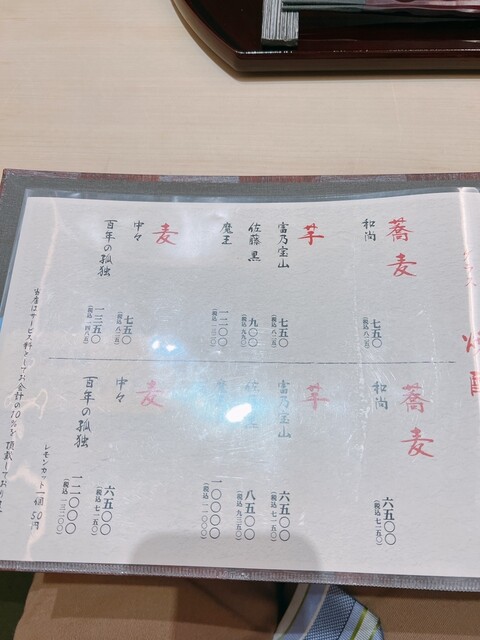 蕎麦
和尚 七五〇
(税込 八二五)
芋
富乃宝山 七五〇
(税込 八二五)
佐藤 黒 九〇〇
(税込 九九〇)
魔王 一一〇〇
麦
中々 七五〇
(税込 八二五)
百年の孤独 一三五〇
(税込 一四八五)
蕎麦
和尚 六五〇〇
(税込 七一五〇)
芋
富乃宝山 六五〇〇
(税込 七一五〇)
八五〇〇
(税込 九三五〇)
一〇〇〇〇
(税込 一一〇〇〇)
麦
中々 六五〇〇
(税込 七一五〇)
百年の孤独 一二〇〇〇
(税込 一三二〇〇)
レモンカット 一個 50円
当店はサービス料としてお会計の10%を頂戴してお